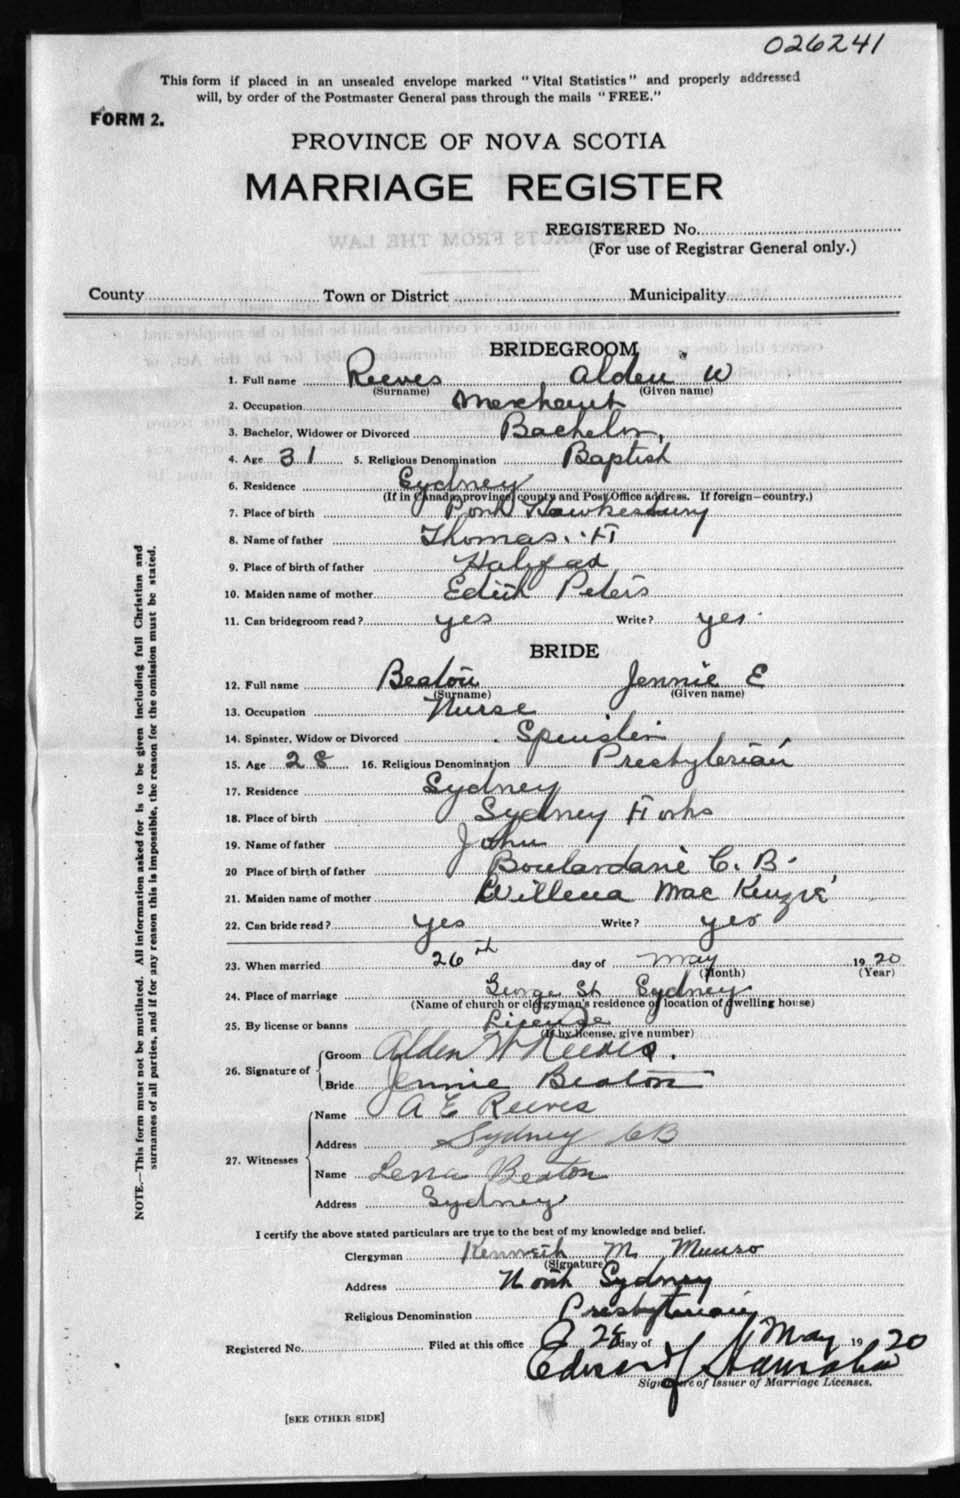 026241
This form if placed in an unsealed envelope marked "Vital Statistics" and properly addressed
will, by order of the Postmaster General pass through the mails "FREE."
FORM 2.
PROVINCE OF NOVA SCOTIA
MARRIAGE REGISTER
REGISTERED No.
(For use of Registrar General only.)
County Town or District Municipality
BRIDEGROOM
1. Full name Reeves Alden W
(Surname) (Given name)
2. Occupation Merchant
3. Bachelor, Widower or Divorced Bachelor
4. Age 31 5. Religious Denomination Baptist
6. Residence Sydney
(If in Canada, province, county and Post Office address. If foreign—country.)
7. Place of birth Port Hawkesbury
8. Name of father Thomas. H
9. Place of birth of father Halifax
10. Maiden name of mother Edith Peters
11. Can bridegroom read? yes Write? yes
BRIDE
12. Full name Beaton Jennie E
(Surname) (Given name)
13. Occupation Nurse
14. Spinster, Widow or Divorced Spinster
15. Age 28 16. Religious Denomination Presbyterian
17. Residence Sydney
18. Place of birth Sydney Forks
19. Name of father John
20 Place of birth of father Boulardarie C. B.
21. Maiden name of mother Willena Mac Kenzie
22. Can bride read? yes Write? yes
23. When married 26th day of May 1920
(Month) (Year)
24. Place of marriage George St Sydney
(Name of church or clergyman's residence or location of dwelling house)
25. By license or banns License
(If by license, give number)
26. Signature of Groom Alden W Reeves.
Bride Jennie Beaton
27. Witnesses Name A E Reeves
Address Sydney CB
Name Lena Beaton
Address Sydney
I certify the above stated particulars are true to the best of my knowledge and belief.
Clergyman Kenneth M Munro
(Signature)
Address North Sydney
Religious Denomination Presbyterian
Registered No. Filed at this office 28 day of May 1920
Edward
Signature of Issuer of Marriage Licenses.
[SEE OTHER SIDE]
NOTE.—This form must not be mutilated. All information asked for is to be given including full Christian and
surnames of all parties, and if for any reason this is impossible, the reason for the omission must be stated.